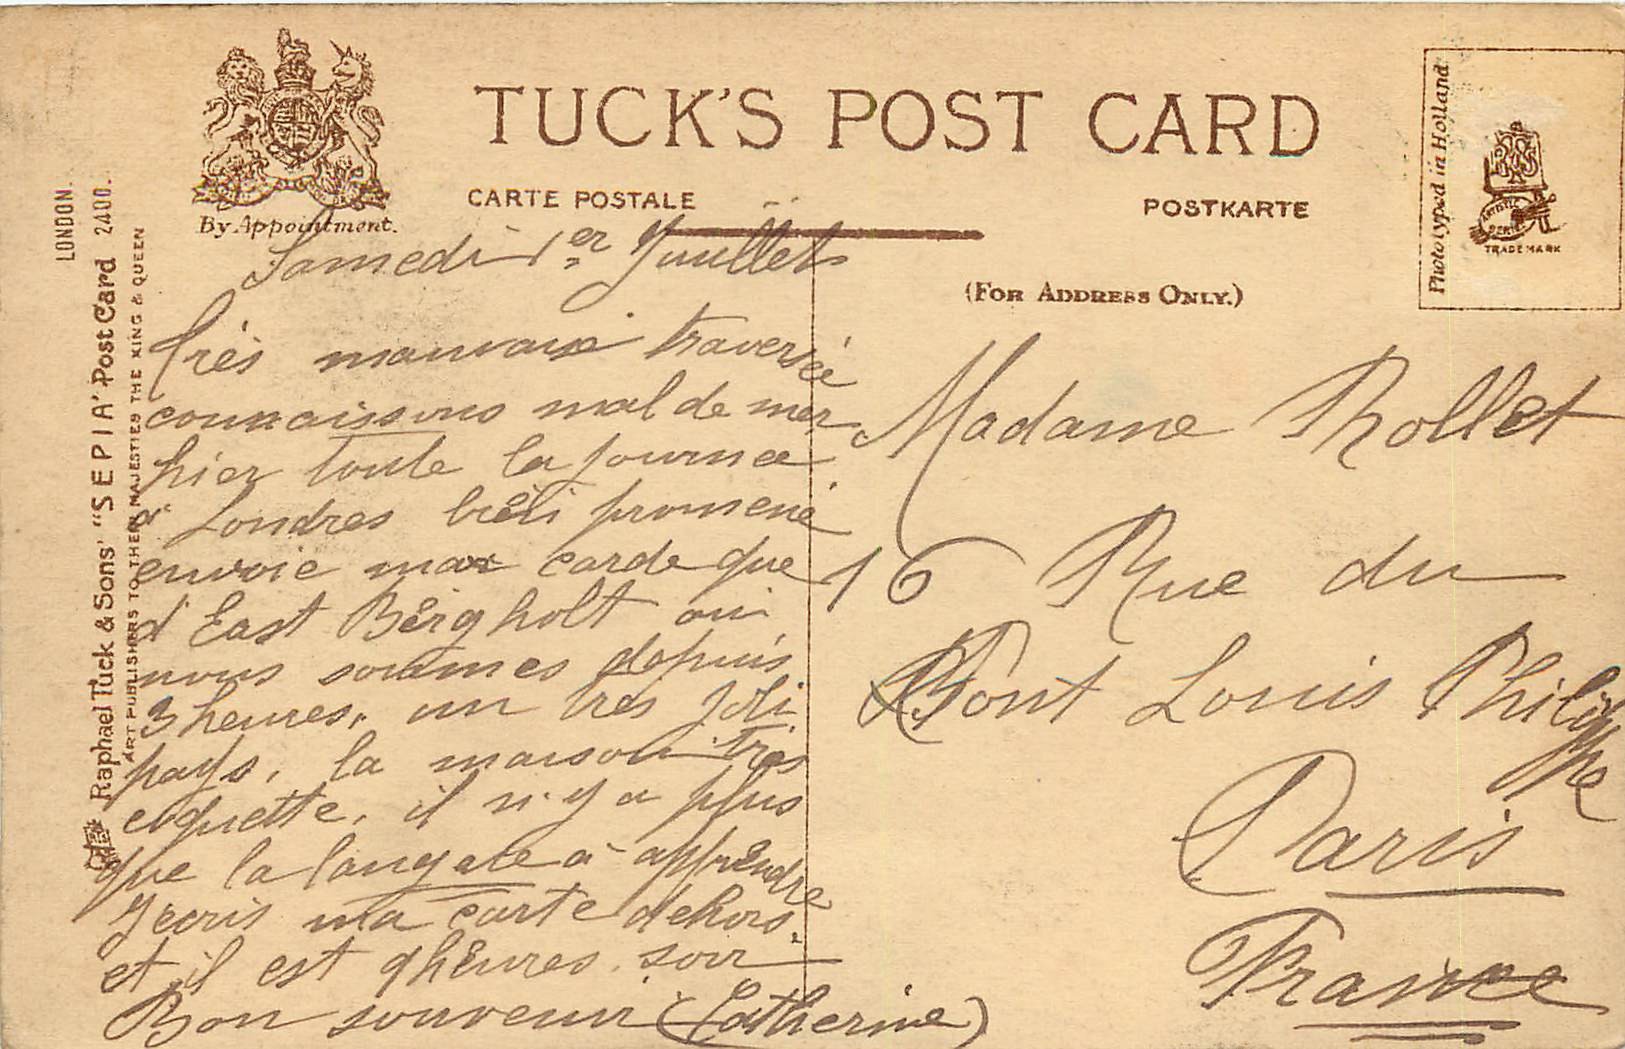 TUCK'S POST CARD
CARTE POSTALE
POSTKARTE
By Appointment.
(FOR ADDRESS ONLY.)
Phototyped in Holland
R T S
ARTISTIC SERIES
TRADE MARK
LONDON.
Raphael Tuck & Sons' "SEPIA" Post Card 2400.
ART PUBLISHERS TO THEIR MAJESTIES THE KING & QUEEN
Samedi 1er Juillet
Très mauvaise traversée
connaissons mal de mer
hier toute la journee
à Londres bien promené
envoie ma carde que
d'East Bergholt où
nous sommes depuis
3 heures, un très joli
pays, la maison très
coquette, il n'y a plus
que la langue à apprendre
J'ecris ma carte dehors.
et il est 9 heures soir
Bon souvenir (Catherine)
Madame Rollet
16 Rue du
Pont Louis Philippe
Paris
France